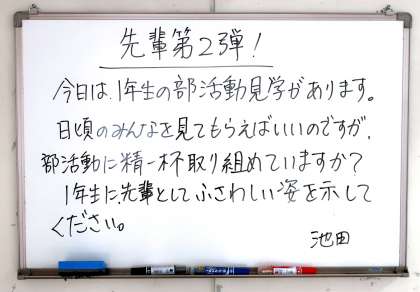 先輩第2弾!
今日は、1年生の部活動見学があります。
日頃のみんなを見てもらえばいいのですが、
部活動に精一杯取り組めていますか?
1年生に、先輩としてふさわしい姿を示して
ください。
池田